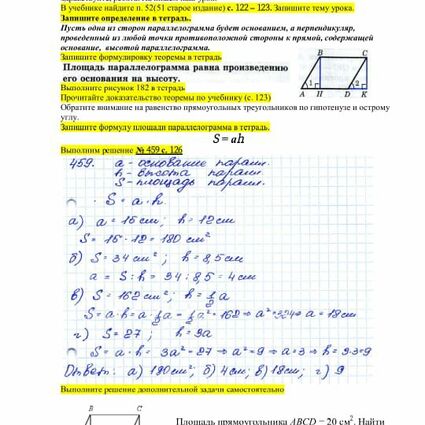 В учебнике найдите п. 52(51 старое издание) с. 122 – 123. Запишите тему урока.
Запишите определение в тетрадь.
Пусть одна из сторон параллелограмма будет основанием, а перпендикуляр,
проведенный из любой точки противоположной стороны к прямой, содержащей
основание, высотой параллелограмма.
Запишите формулировку теоремы в тетрадь
Площадь параллелограмма равна произведению
его основания на высоту.
B C
1 2
A H D K
Выполните рисунок 182 в тетрадь
Прочитайте доказательство теоремы по учебнику (с. 123)
Обратите внимание на равенство прямоугольных треугольников по гипотенузе и острому
углу.
Запишите формулу площади параллелограмма в тетрадь.
S = ah
Выполним решение № 459 с. 126
459. a - основание паралл.
h - высота паралл.
S - площадь паралл.
S = a·h.
а) a = 15 см; h = 12 см
S = 15·12 = 180 см²
б) S = 34 см²; h = 8,5 см
a = S : h = 34 : 8,5 = 4 см
в) S = 162 см²; h = ½a
S = a·h = a·½a = ½a² = 162 ⇒ a² = 324 ⇒ a = 18 см
г) S = 27; h = 3a
S = a·h = 3a² = 27 ⇒ a² = 9 ⇒ a = 3 ⇒ h = 3·3 = 9
Ответ: а) 180 см² б) 4 см; в) 18 см; г) 9
Выполните решение дополнительной задачи самостоятельно
B C
Площадь прямоугольника ABCD = 20 см². Найти